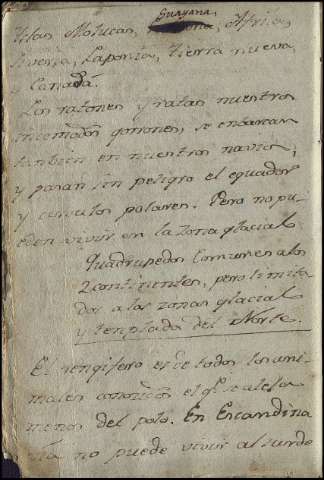 Guayana,
Islas Molucas, Africa,
Laponia, Tierra nueva,
y Canadá.
Los ratones y ratas nuestros
incomodos gorrones, se embarcan
tambien en nuestros navios,
y pasan sin peligro el equador
y circulos polares. Pero no pu-
eden vivir en la zona glacial.
Quadrupedos comunes a los
2 continentes, pero limita-
dos a las zonas glacial
y templada del Norte.
El rengifero es de todos los ani-
males conocidos el qe se aleja
menos del polo. En Escandina-
via no puede vivir al sur de